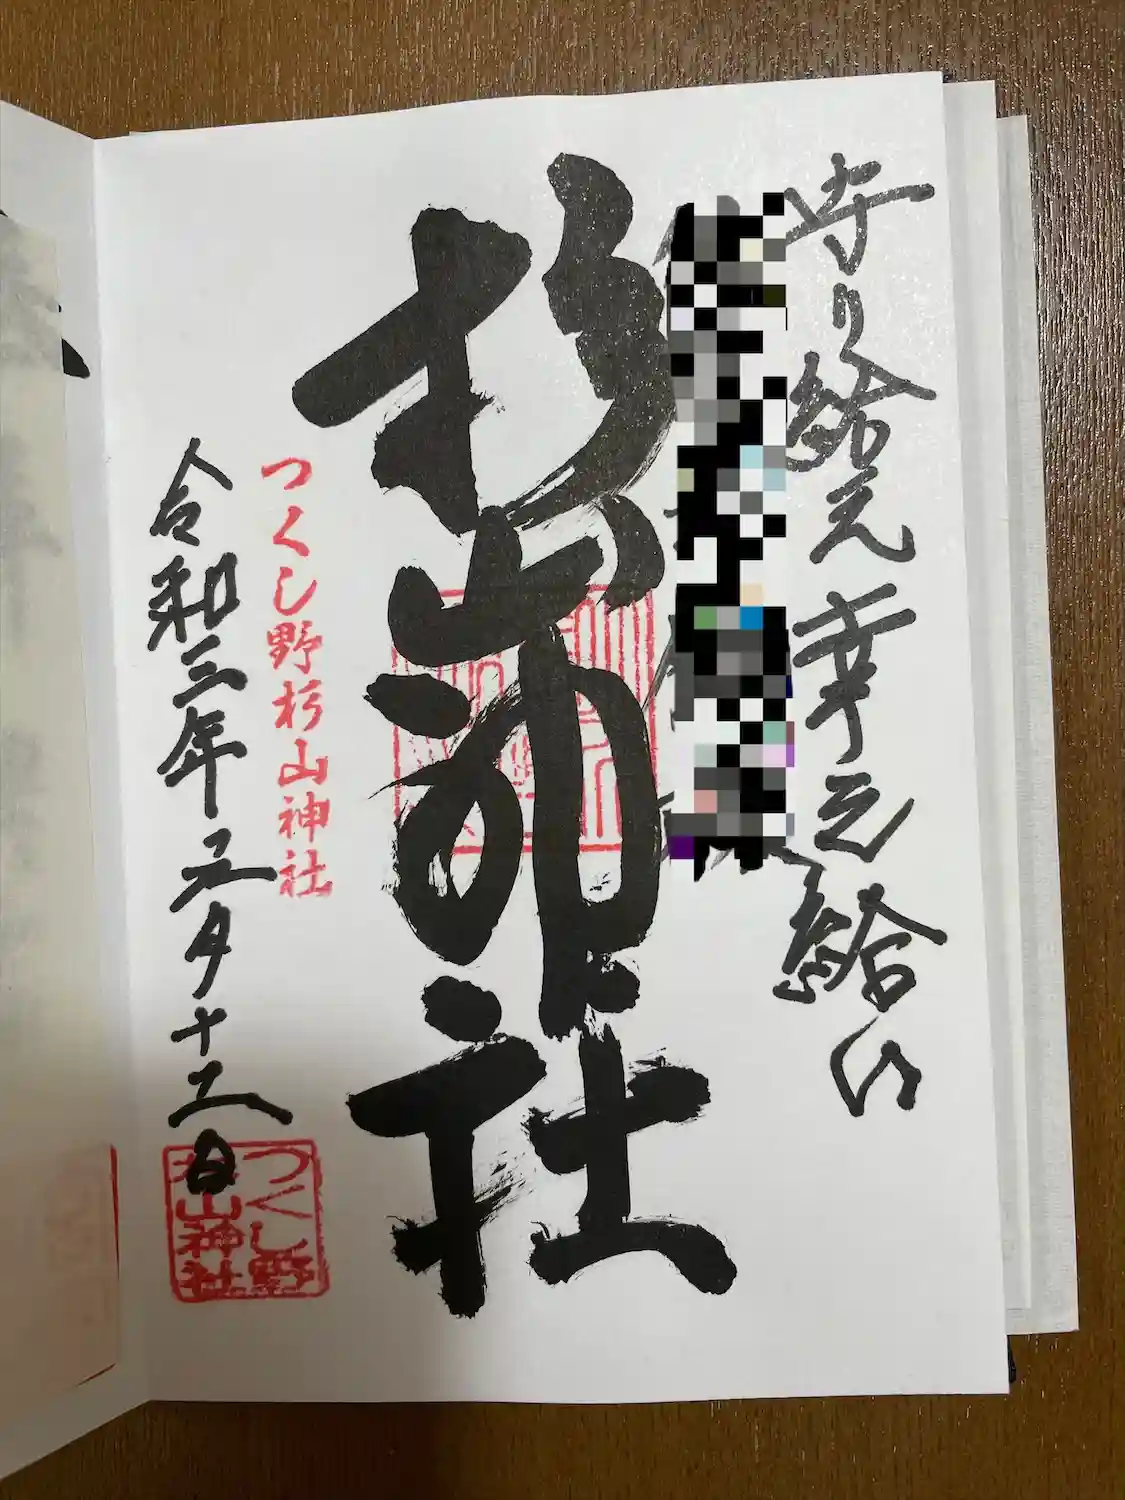 守り給え幸え給い
杉山神社
つくし野杉山神社
令和三年五月十五日
つくし野
杉山神社